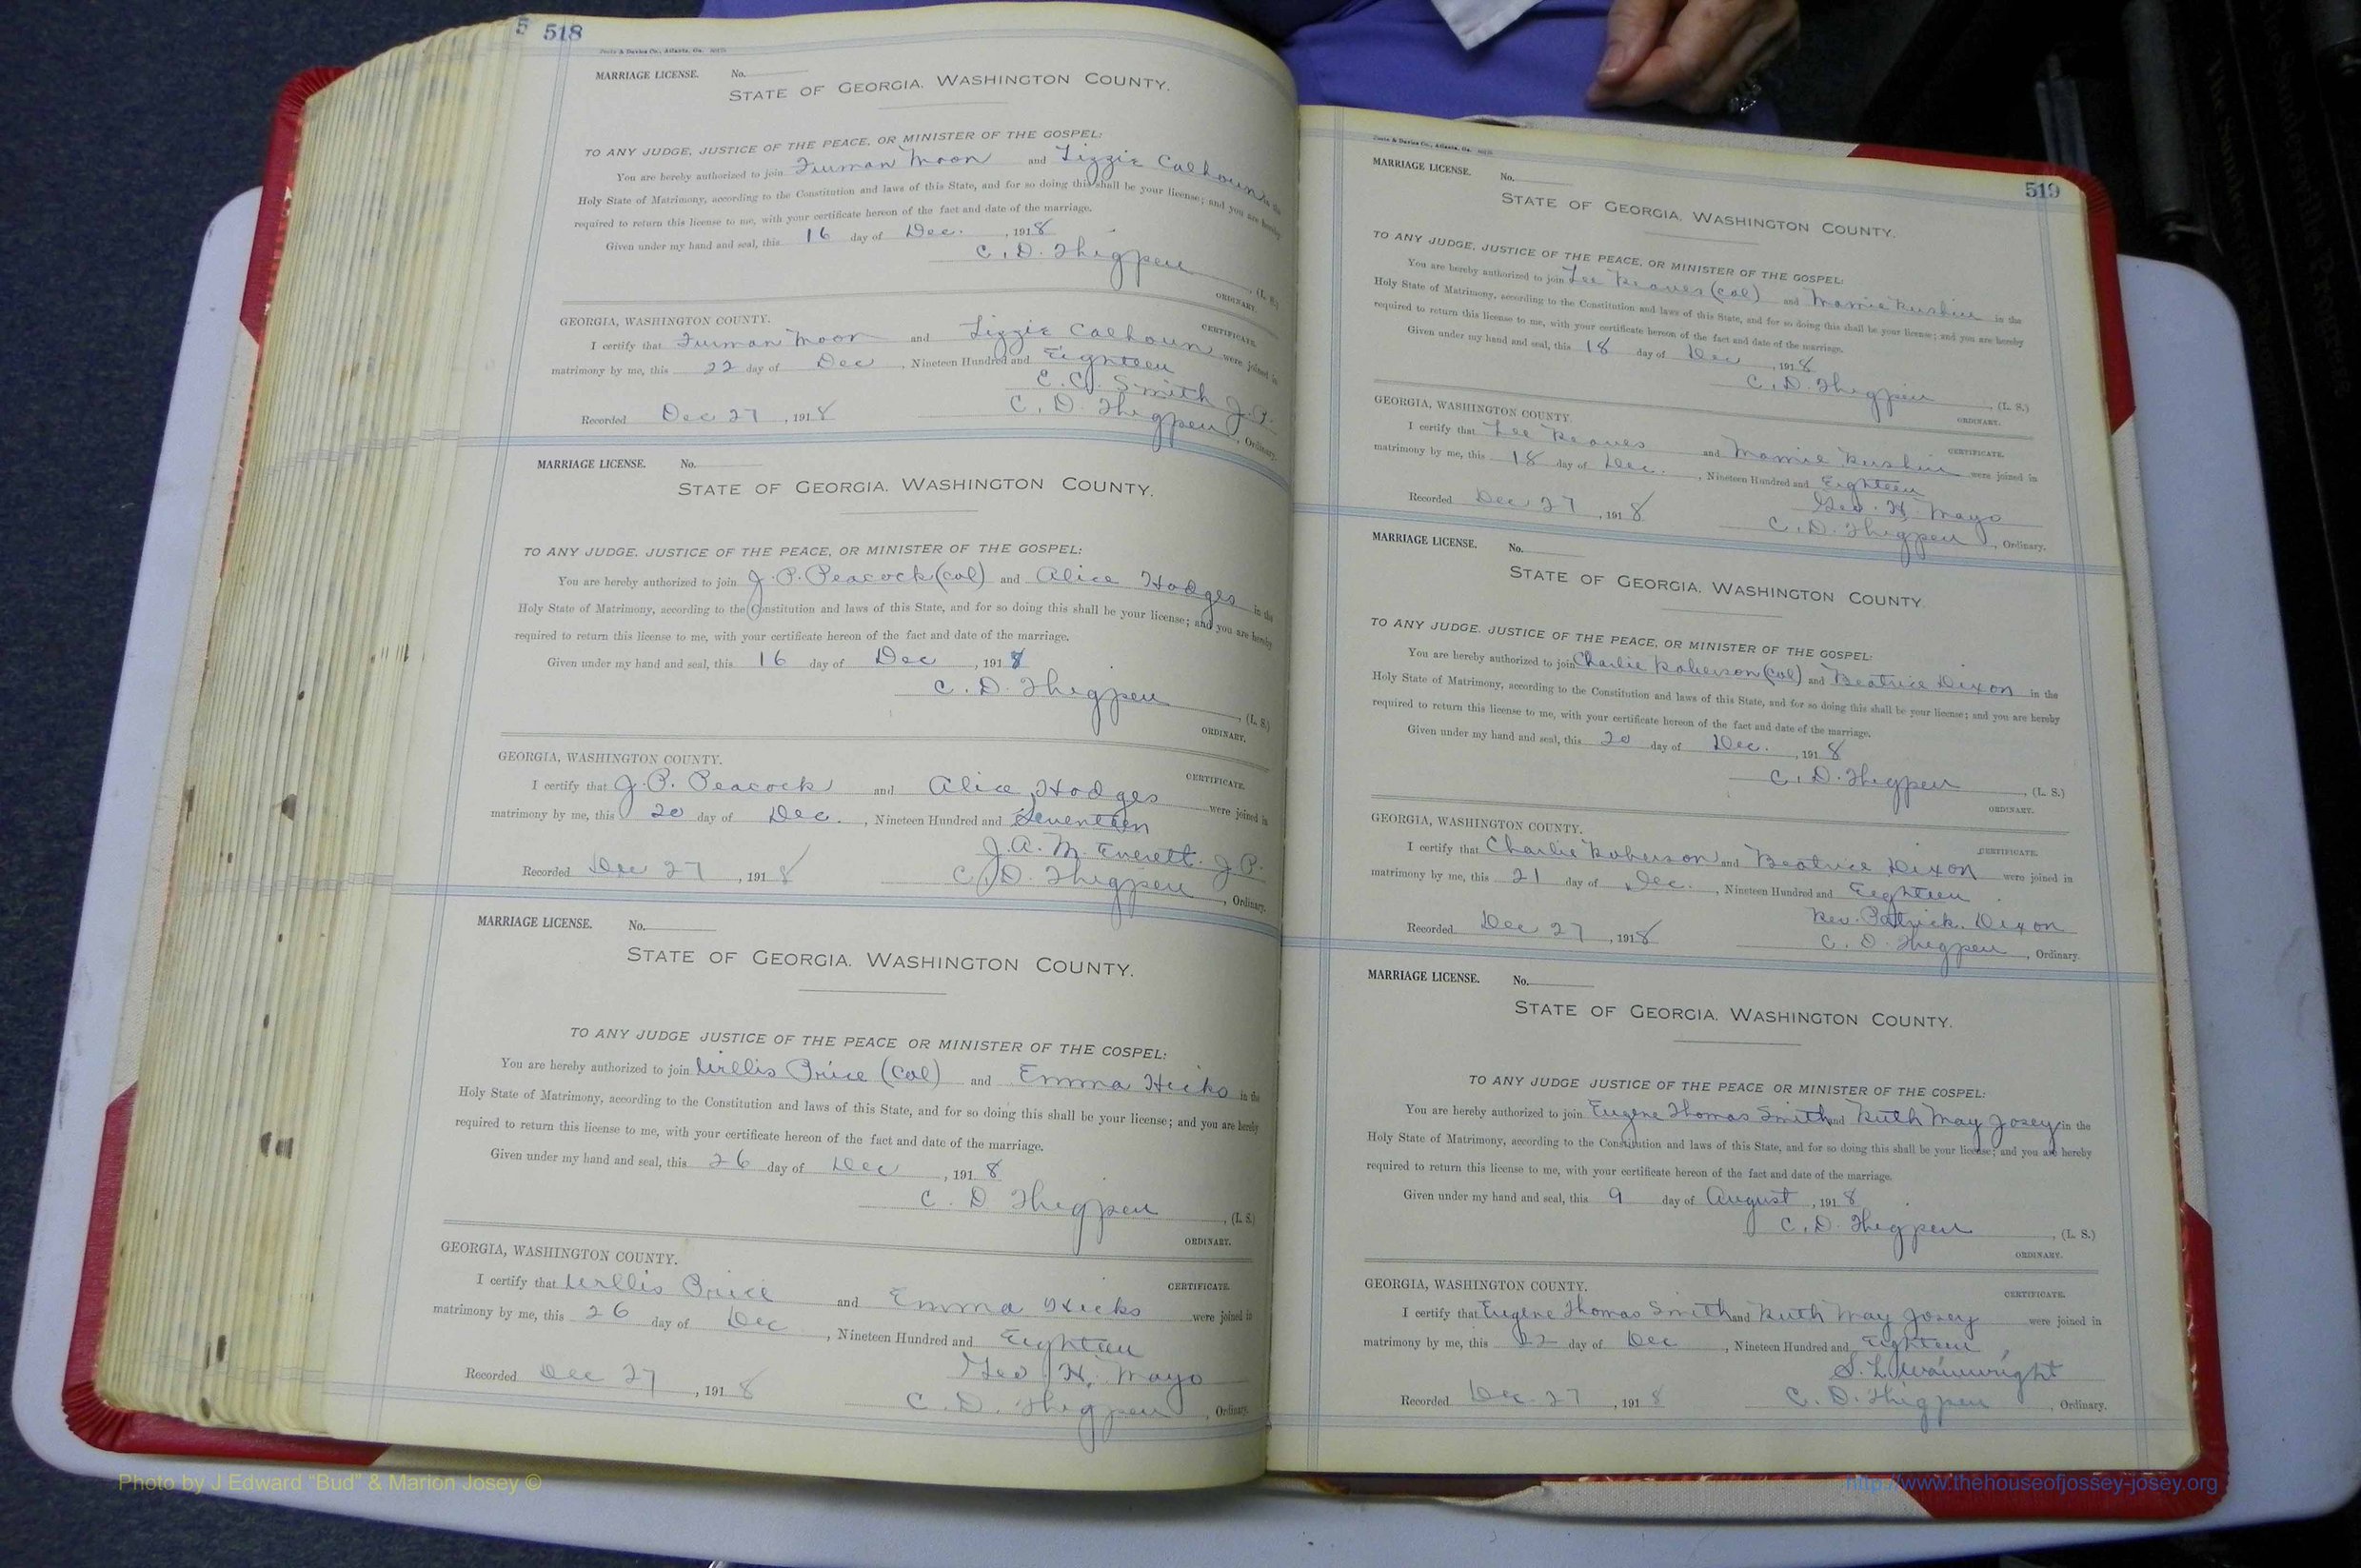 5 518
MARRIAGE LICENSE. No.
STATE OF GEORGIA. WASHINGTON COUNTY.
TO ANY JUDGE, JUSTICE OF THE PEACE, OR MINISTER OF THE GOSPEL:
You are hereby authorized to join Furman Moon and Lizzie Calhoun in the
Holy State of Matrimony, according to the Constitution and laws of this State, and for so doing this shall be your license; and you are hereby
required to return this license to me, with your certificate hereon of the fact and date of the marriage.
Given under my hand and seal, this 16 day of Dec. , 1918
C. D. Thigpen , (L. S.)
ORDINARY.
GEORGIA, WASHINGTON COUNTY.
CERTIFICATE.
I certify that Furman Moon and Lizzie Calhoun were joined in
matrimony by me, this 22 day of Dec , Nineteen Hundred and Eighteen
Smith J. P.
Recorded Dec 27 , 1918 C. D. Thigpen , Ordinary.
MARRIAGE LICENSE. No.
STATE OF GEORGIA. WASHINGTON COUNTY.
TO ANY JUDGE, JUSTICE OF THE PEACE, OR MINISTER OF THE GOSPEL:
You are hereby authorized to join J. P. Peacock (col) and Alice Hodges in the
Holy State of Matrimony, according to the Constitution and laws of this State, and for so doing this shall be your license; and you are hereby
required to return this license to me, with your certificate hereon of the fact and date of the marriage.
Given under my hand and seal, this 16 day of Dec , 1918
C. D. Thigpen , (L. S.)
ORDINARY.
GEORGIA, WASHINGTON COUNTY.
CERTIFICATE.
I certify that J. P. Peacock and Alice Hodges were joined in
matrimony by me, this 20 day of Dec. , Nineteen Hundred and Seventeen
J. A. M. Everett. J. P.
Recorded Dec 27 , 1918 C. D. Thigpen , Ordinary.
MARRIAGE LICENSE. No.
STATE OF GEORGIA. WASHINGTON COUNTY.
TO ANY JUDGE JUSTICE OF THE PEACE OR MINISTER OF THE GOSPEL:
You are hereby authorized to join Willis Price (Col) and Emma Hicks in the
Holy State of Matrimony, according to the Constitution and laws of this State, and for so doing this shall be your license; and you are hereby
required to return this license to me, with your certificate hereon of the fact and date of the marriage.
Given under my hand and seal, this 26 day of Dec , 1918
C. D Thigpen , (L. S.)
ORDINARY.
GEORGIA, WASHINGTON COUNTY.
CERTIFICATE.
I certify that Willis Price and Emma Hicks were joined in
matrimony by me, this 26 day of Dec , Nineteen Hundred and Eighteen
Geo. H. Mayo
Recorded Dec 27 , 1918 C. D. Thigpen , Ordinary.
519
MARRIAGE LICENSE. No.
STATE OF GEORGIA. WASHINGTON COUNTY.
TO ANY JUDGE, JUSTICE OF THE PEACE, OR MINISTER OF THE GOSPEL:
You are hereby authorized to join Lee Reaves (col) and Mamie Rushin in the
Holy State of Matrimony, according to the Constitution and laws of this State, and for so doing this shall be your license; and you are hereby
required to return this license to me, with your certificate hereon of the fact and date of the marriage.
Given under my hand and seal, this 18 day of Dec , 1918
C. D. Thigpen , (L. S.)
ORDINARY.
GEORGIA, WASHINGTON COUNTY.
CERTIFICATE.
I certify that Lee Reaves and Mamie Rushin were joined in
matrimony by me, this 18 day of Dec. , Nineteen Hundred and Eighteen
Geo. H. Mayo
Recorded Dec 27 , 1918 C. D. Thigpen , Ordinary.
MARRIAGE LICENSE. No.
STATE OF GEORGIA. WASHINGTON COUNTY.
TO ANY JUDGE, JUSTICE OF THE PEACE, OR MINISTER OF THE GOSPEL:
You are hereby authorized to join Charlie Roberson (Col) and Beatrice Dixon in the
Holy State of Matrimony, according to the Constitution and laws of this State, and for so doing this shall be your license; and you are hereby
required to return this license to me, with your certificate hereon of the fact and date of the marriage.
Given under my hand and seal, this 20 day of Dec. , 1918
C. D. Thigpen , (L. S.)
ORDINARY.
GEORGIA, WASHINGTON COUNTY.
CERTIFICATE.
I certify that Charlie Roberson and Beatrice Dixon were joined in
matrimony by me, this 21 day of Dec. , Nineteen Hundred and Eighteen
Rev. Patrick. Dixon
Recorded Dec 27 , 1918 C. D. Thigpen , Ordinary.
MARRIAGE LICENSE. No.
STATE OF GEORGIA. WASHINGTON COUNTY.
TO ANY JUDGE JUSTICE OF THE PEACE OR MINISTER OF THE GOSPEL:
You are hereby authorized to join Eugene Thomas Smith and Ruth May Josey in the
Holy State of Matrimony, according to the Constitution and laws of this State, and for so doing this shall be your license; and you are hereby
required to return this license to me, with your certificate hereon of the fact and date of the marriage.
Given under my hand and seal, this 9 day of August , 1918
C. D. Thigpen , (L. S.)
ORDINARY.
GEORGIA, WASHINGTON COUNTY.
CERTIFICATE.
I certify that Eugene Thomas Smith and Ruth May Josey were joined in
matrimony by me, this 22 day of Dec , Nineteen Hundred and Eighteen
S. L. Wainwright
Recorded Dec. 27 , 1918 C. D. Thigpen , Ordinary.
Photo by J Edward "Bud" & Marion Josey ©
http://www.thehouseofjossey-josey.org